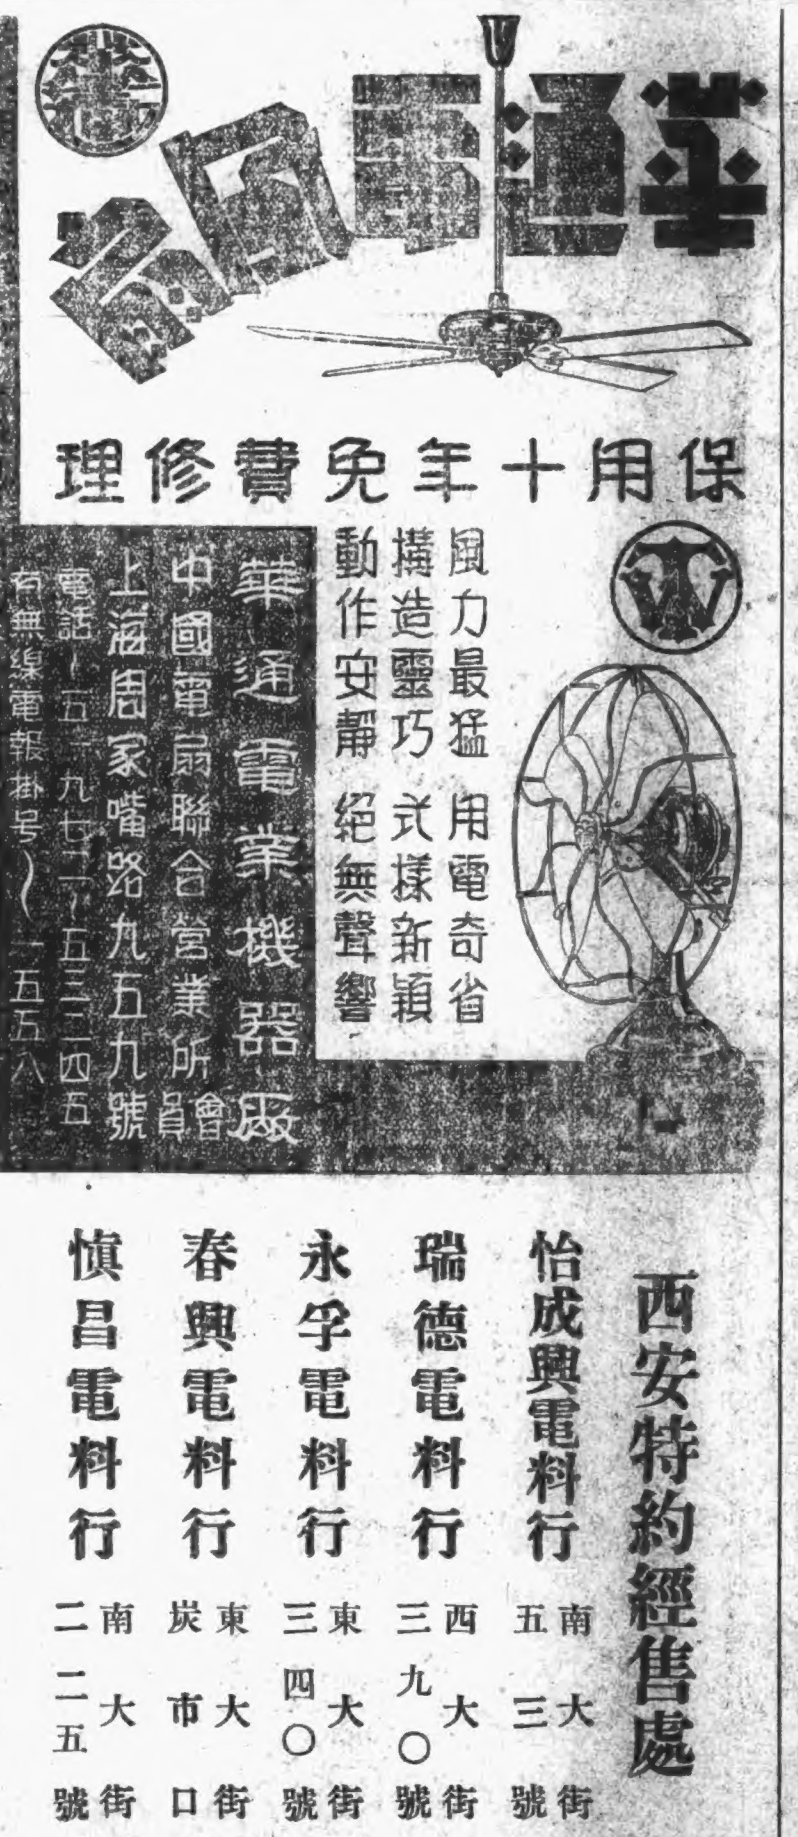 華通電風扇
保用十年免費修理
風力最猛 用電奇省
構造靈巧 式樣新穎
動作安靜 絕無聲響
華通電業機器廠
中國電扇聯合營業所會員
上海周家嘴路九五九號
電話〜五一九七二〜五三二四五
有無線電報掛号〜一五五八
西安特約經售處
怡成興電料行 南大街五三號
瑞德電料行 西大街三九〇號
永孚電料行 東大街三四〇號
春興電料行 東大街炭市口
慎昌電料行 南大街二二五號